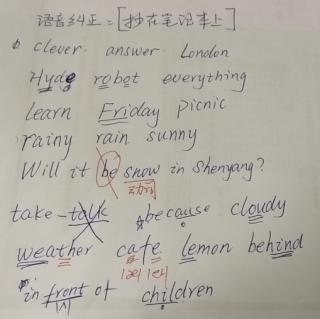 语音纠正:[抄在笔记本上]
clever. answer. London
Hyde robot everything
learn Friday picnic
rainy rain sunny
Will it be snow in Shenyang?
动词
take-talk because cloudy
weather cafe lemon behind
in front of children